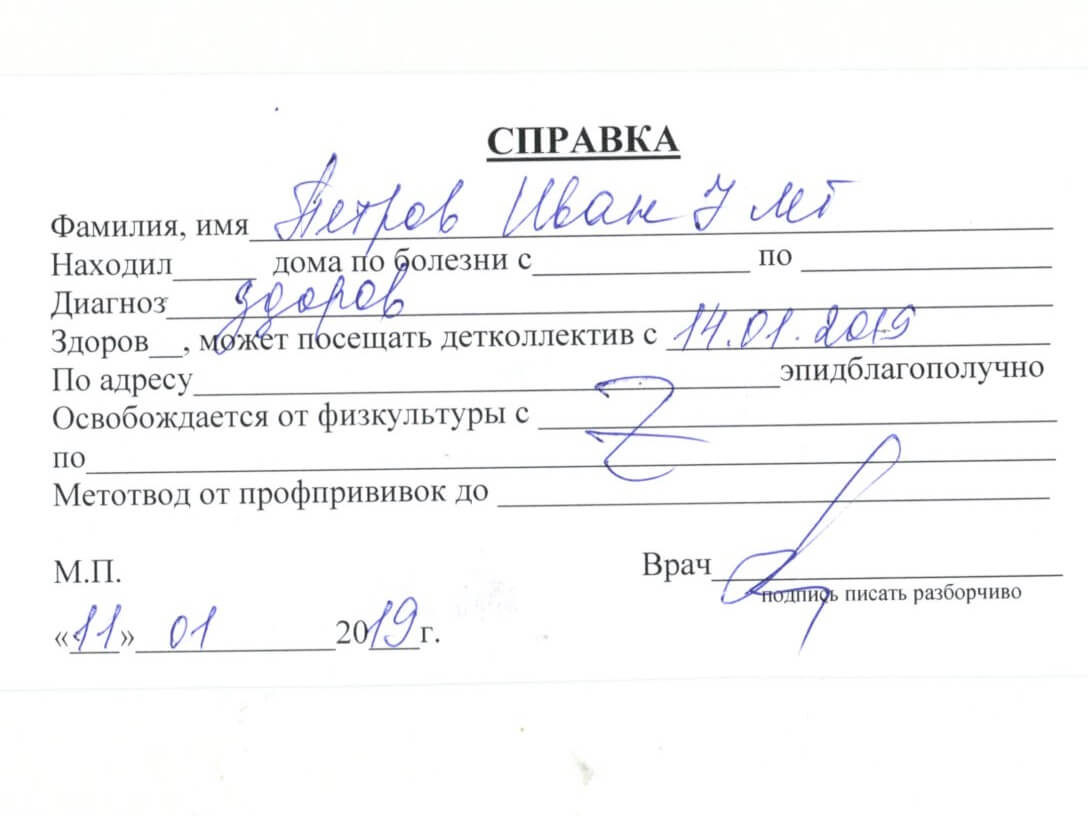 СПРАВКА
Фамилия, имя Петров Иван 7 лет
Находил______ дома по болезни с______________ по ________________
Диагноз здоров
Здоров__, может посещать детколлектив с 14.01.2019
По адресу______________________________________эпидблагополучно
Освобождается от физкультуры с __________________________________
по________________________________________________________________
Метотвод от профпрививок до ____________________________________
М.П. Врач______________________
подпись писать разборчиво
«11» 01 2019г.